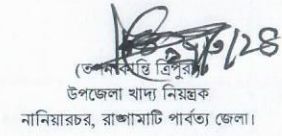 (তপনকান্তি ত্রিপুরা)
উপজেলা খাদ্য নিয়ন্ত্রক
নানিয়ারচর, রাঙ্গামাটি পার্বত্য জেলা।